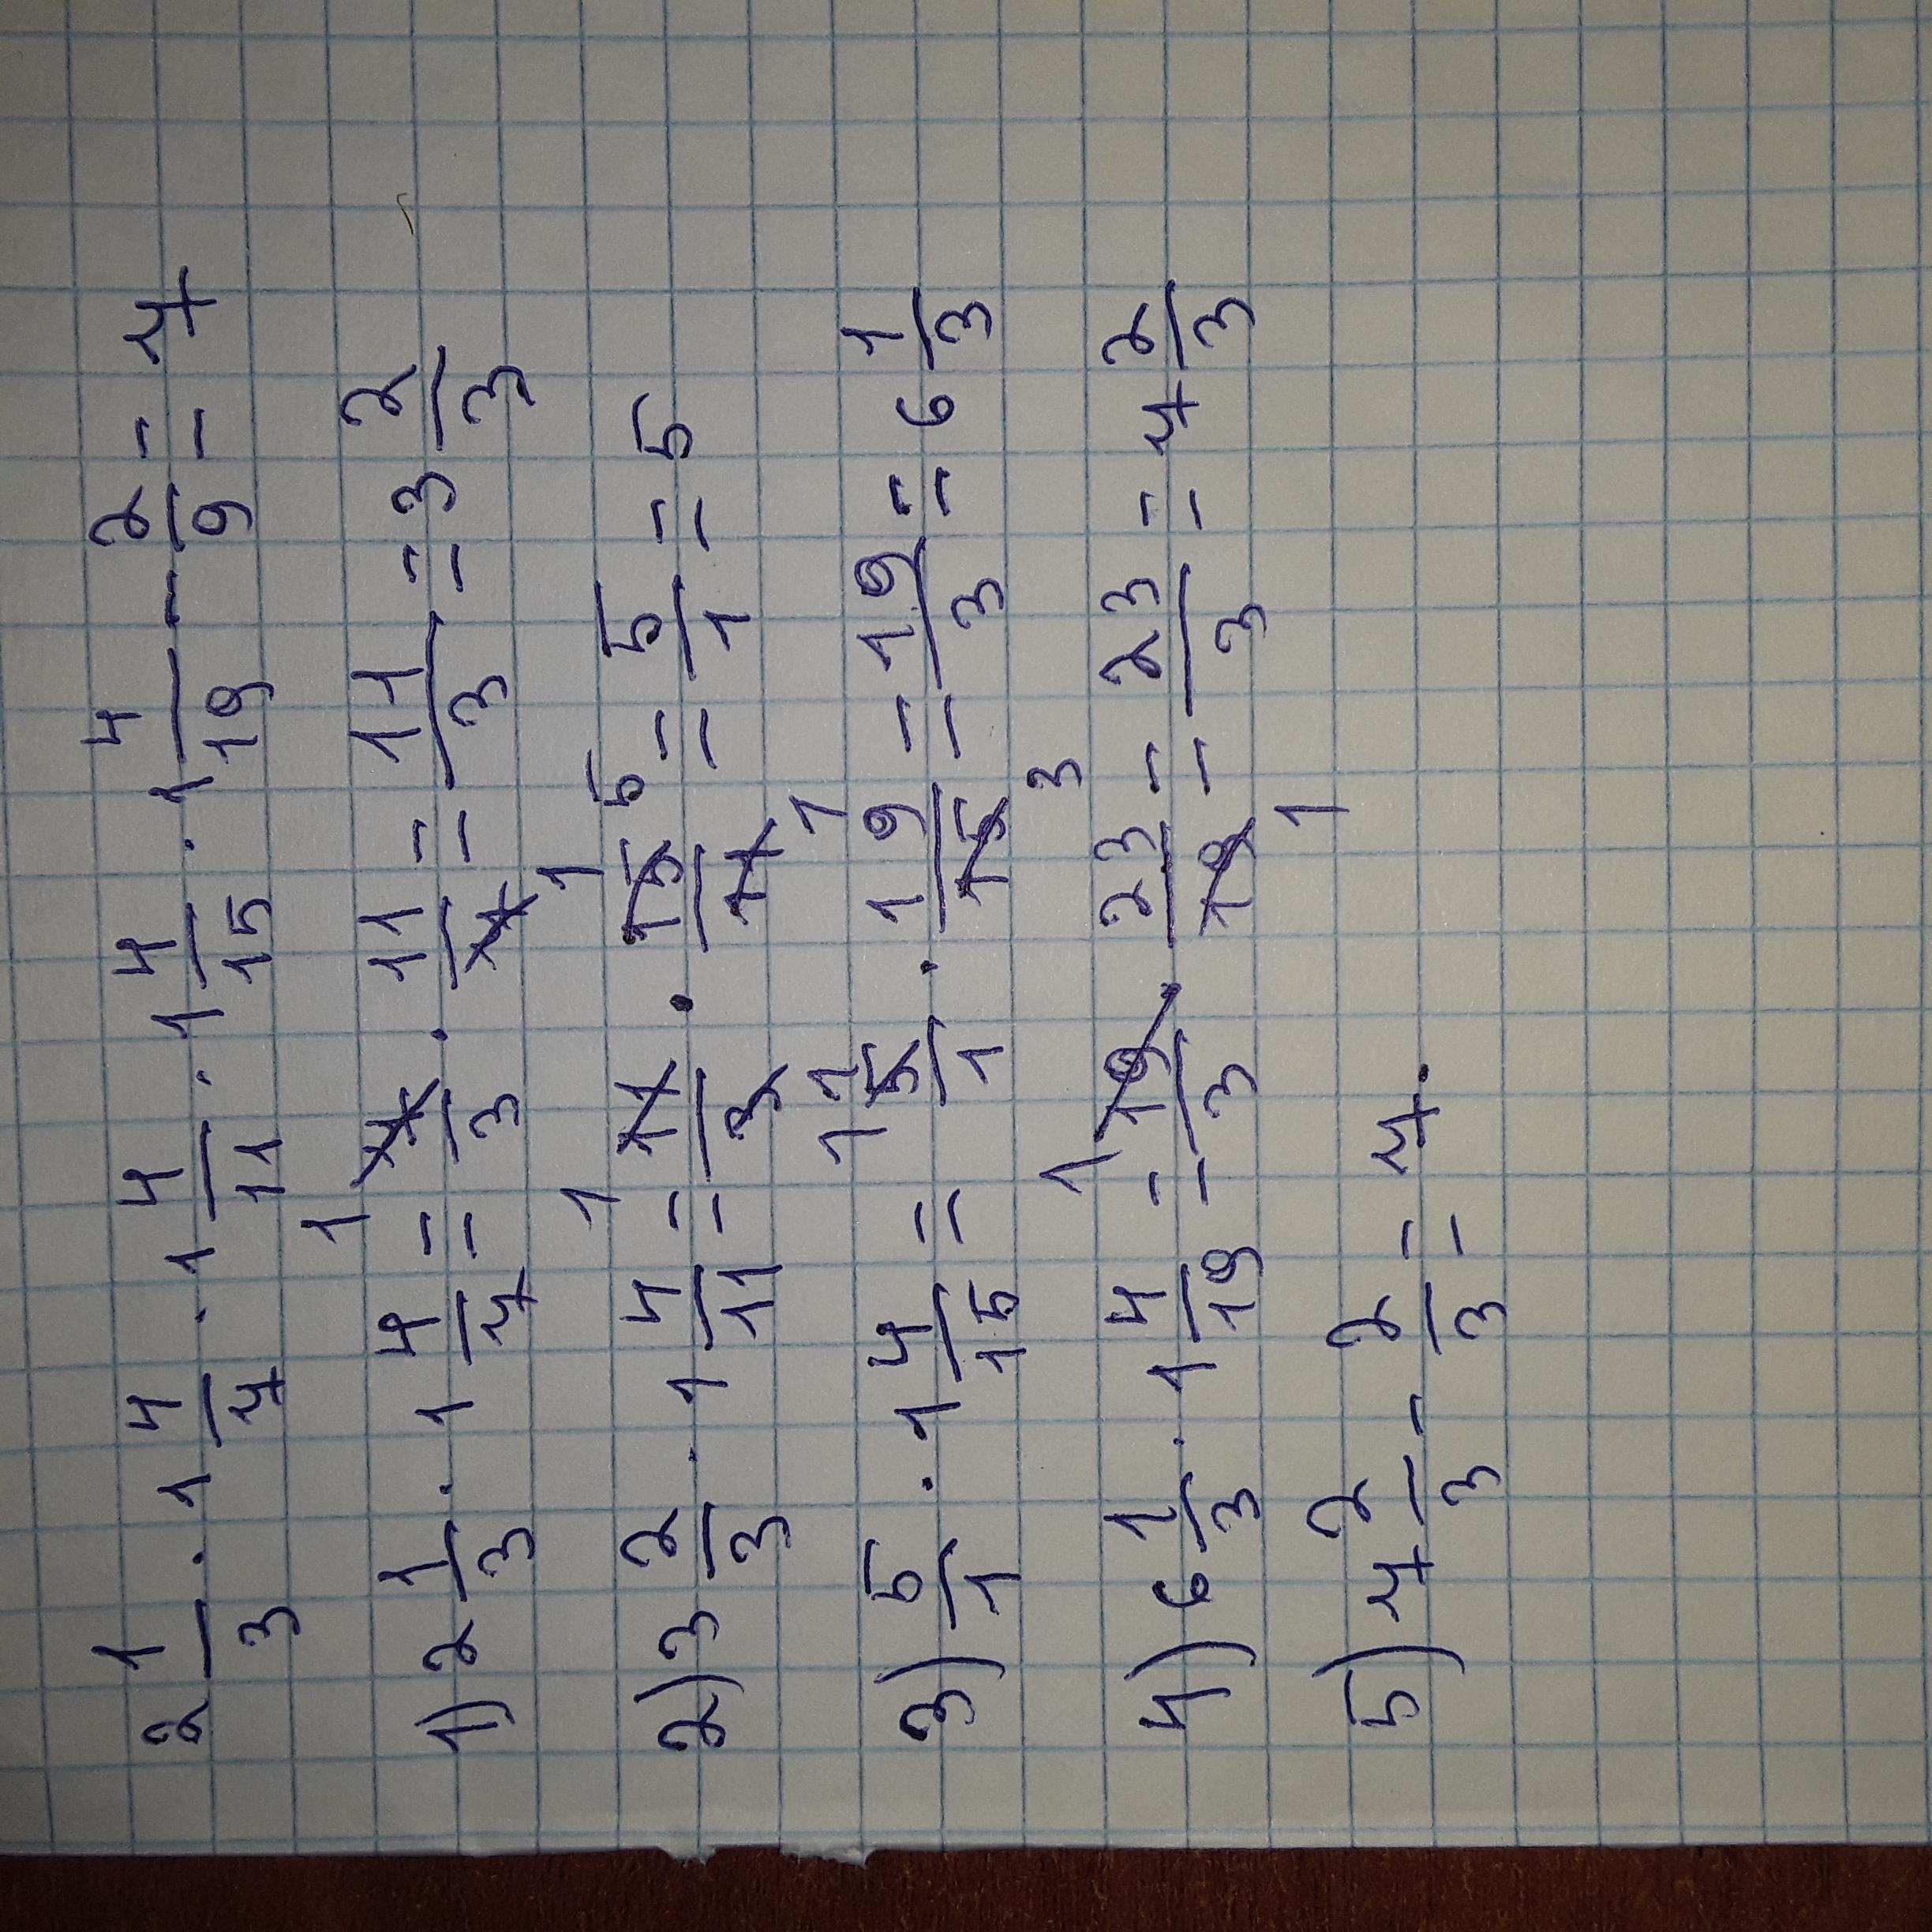 2 1/3 · 1 4/7 · 1 4/11 · 1 4/15 · 1 4/19 - 2/9 = 7
1) 2 1/3 · 1 4/7 = 7/3 · 11/7 = 11/3 = 3 2/3
2) 3 2/3 · 1 4/11 = 11/3 · 15/11 = 5/1 = 5
3) 5/1 · 1 4/15 = 5/1 · 19/15 = 19/3 = 6 1/3
4) 6 1/3 · 1 4/19 = 19/3 · 23/19 = 23/3 = 7 2/3
5) 7 2/3 - 2/3 = 7.